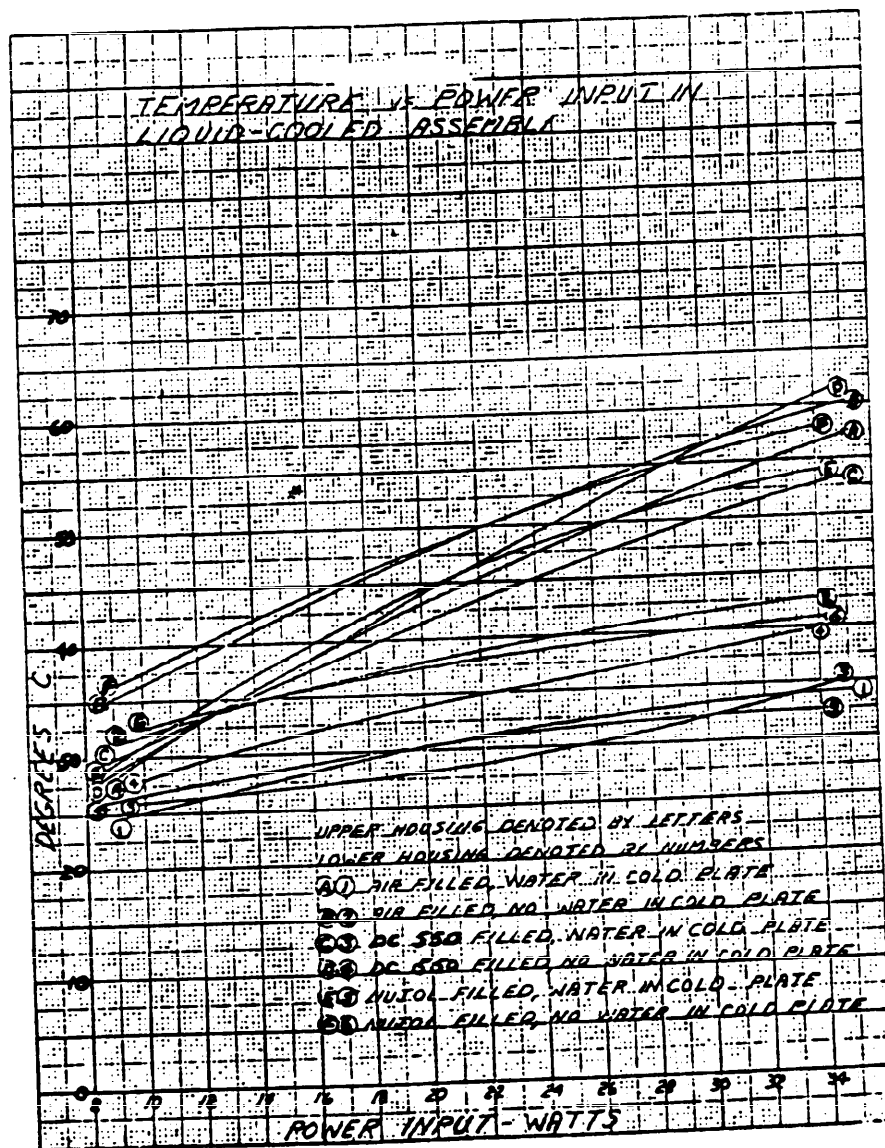 TEMPERATURE vs POWER INPUT IN
LIQUID-COOLED ASSEMBLY
70
60
50
40
30
20
10
0
DEGREES C
UPPER HOUSING DENOTED BY LETTERS
LOWER HOUSING DENOTED BY NUMBERS
A 1 AIR FILLED, WATER IN COLD PLATE
AIR FILLED, NO WATER IN COLD PLATE
C 3 DC 550 FILLED, WATER IN COLD PLATE
DC 550 FILLED, NO WATER IN COLD PLATE
E 5 NUJOL FILLED, WATER IN COLD PLATE
NUJOL FILLED, NO WATER IN COLD PLATE
8 10 12 14 16 18 20 22 24 26 28 30 32 34
POWER INPUT - WATTS